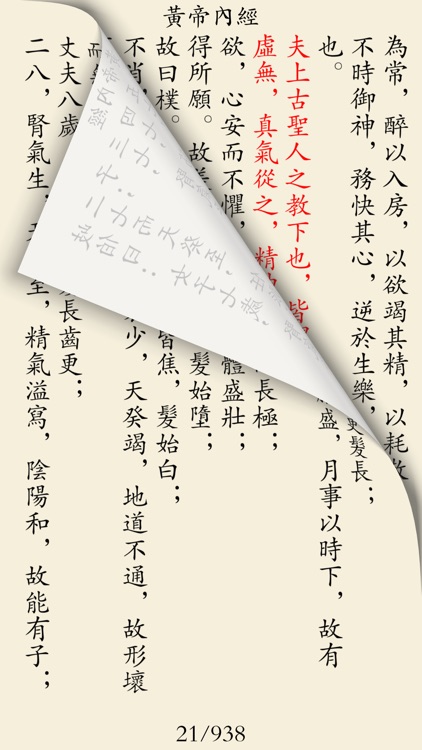 黃帝內經
為常，醉以入房，以欲竭其精，以耗
不時御神，務快其心，逆於生樂，更髮長；
也。盛，月事以時下，故有
夫上古聖人之教下也，皆
虛無，真氣從之，精長極；
欲，心安而不懼，體盛壯；
得所願。故髮始墮；
故曰樸。皆焦，髮始白；
不肖少，天癸竭，地道不通，故形壞
而
丈夫八歲長齒更；
二八，腎氣生，至，精氣溢寫，陰陽和，故能有子；
21/938